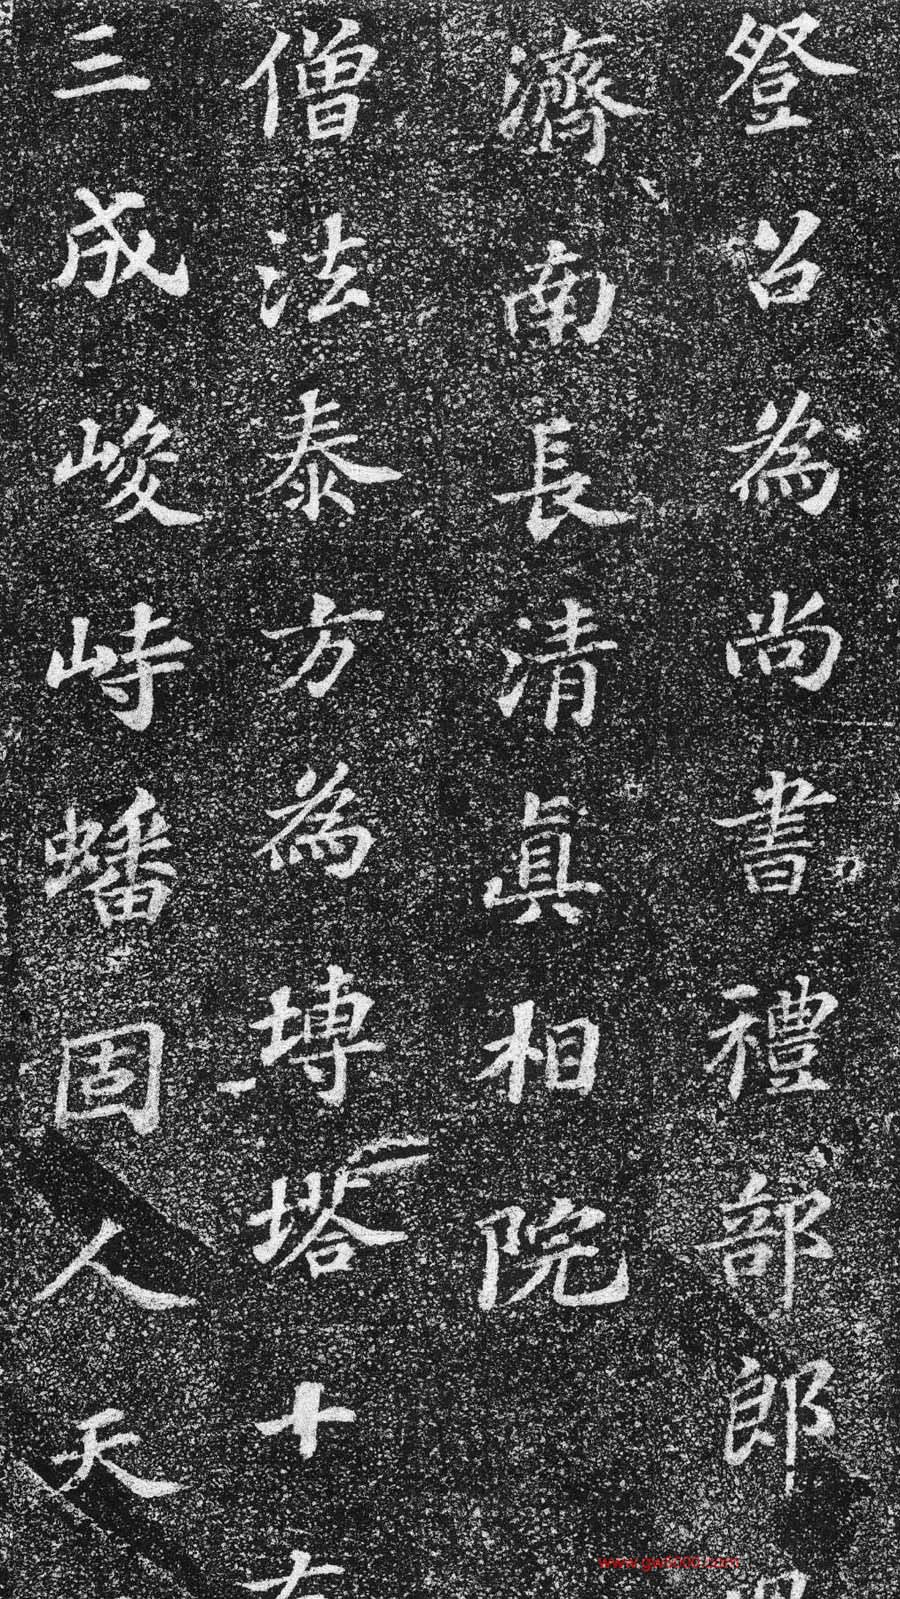 登召為尚書禮部郎
濟南長清眞相院
僧法泰方為塼塔十有
三成峻峙蟠固人天